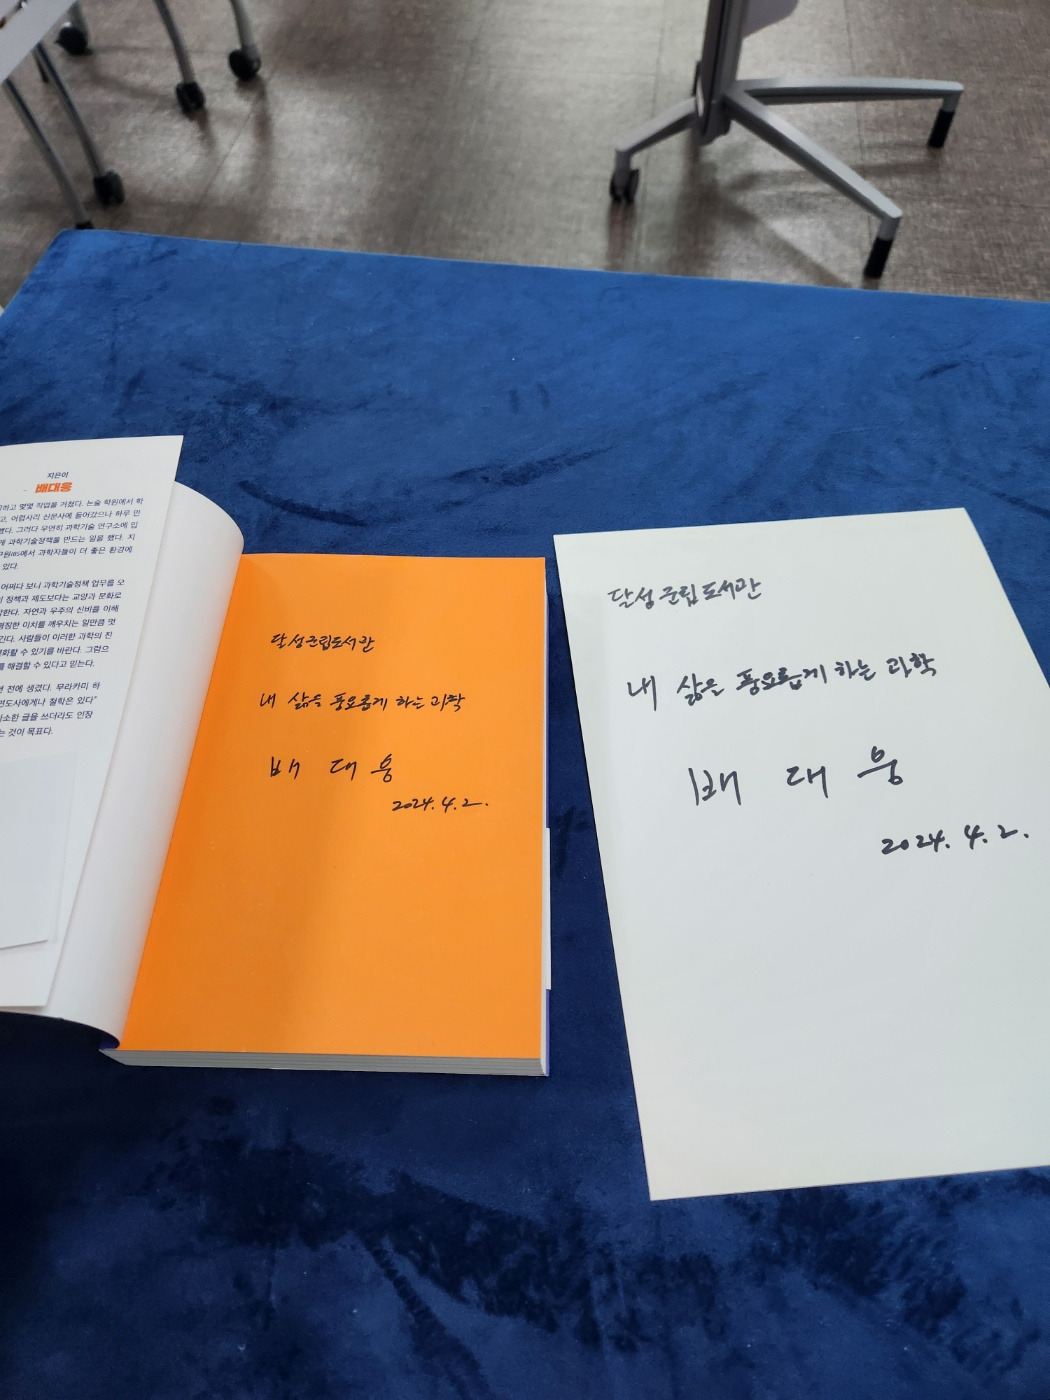 지은이
배대웅
하고 몇몇 직업을 거쳤다. 논술 학원에서 학
고, 어렵사리 신문사에 들어갔으나 하루 만
했다. 그러다 우연히 과학기술 연구소에 입
게 과학기술정책을 만드는 일을 했다. 지
구원IBS에서 과학자들이 더 좋은 환경에
있다.
어쩌다 보니 과학기술정책 업무를 오
정책과 제도보다는 교양과 문화로
각한다. 자연과 우주의 신비를 이해
명징한 이치를 깨우치는 일만큼 멋
긴다. 사람들이 이러한 과학의 진
변화할 수 있기를 바란다. 그럼으
를 해결할 수 있다고 믿는다.
전에 생겼다. 무라카미 하
면도사에게나 철학은 있다"
사소한 글을 쓰더라도 인장
는 것이 목표다.
달성군립도서관
내 삶을 풍요롭게 하는 과학
배 대 웅
2024. 4. 2.
달성군립도서관
내 삶은 풍요롭게 하는 과학
배 대 웅
2024. 4. 2.